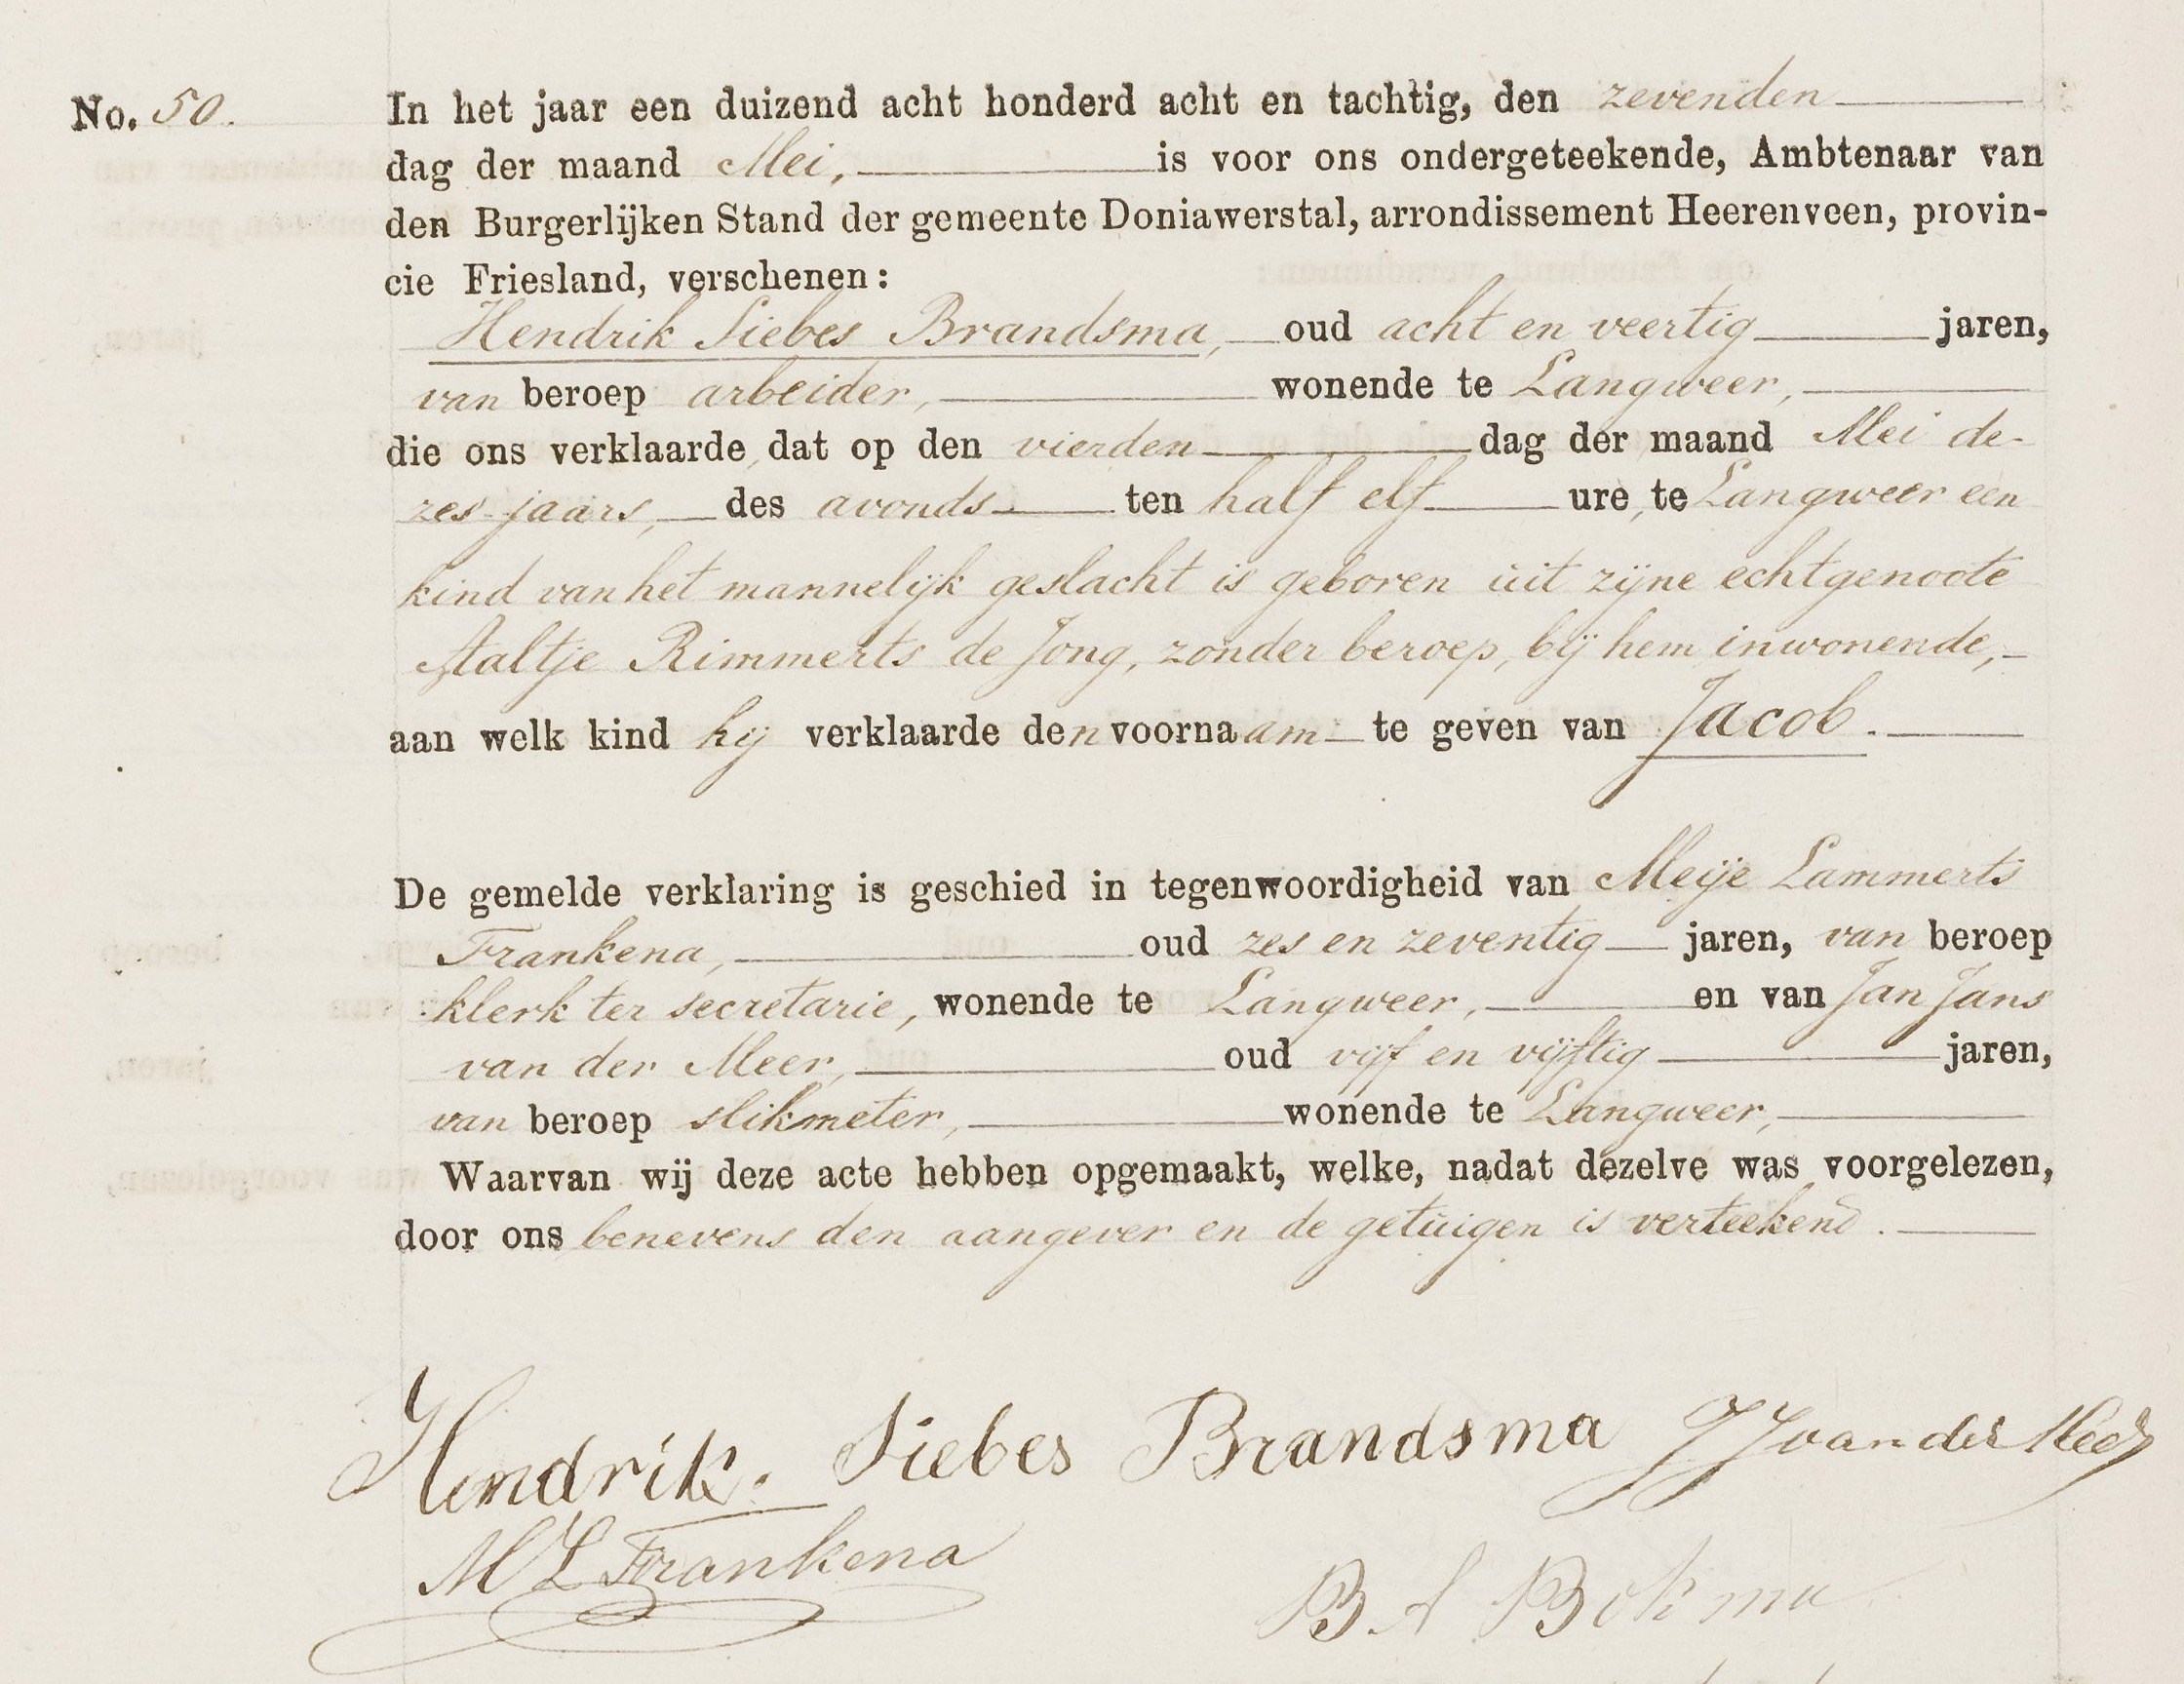 No. 50. In het jaar een duizend acht honderd acht en tachtig, den zevenden
dag der maand Mei, is voor ons ondergeteekende, Ambtenaar van
den Burgerlijken Stand der gemeente Doniawerstal, arrondissement Heerenveen, provin-
cie Friesland, verschenen:
Hendrik Siebes Brandsma, oud acht en veertig jaren,
van beroep arbeider, wonende te Langweer,
die ons verklaarde dat op den vierden dag der maand Mei de-
zes jaars, des avonds ten half elf ure, te Langweer een
kind van het mannelijk geslacht is geboren uit zijne echtgenoote
Aaltje Rimmerts de Jong, zonder beroep, bij hem inwonende,
aan welk kind hij verklaarde den voornaam te geven van Jacob.
De gemelde verklaring is geschied in tegenwoordigheid van Meije Lammerts
Frankena, oud zes en zeventig jaren, van beroep
klerk ter secretarie, wonende te Langweer, en van Jan Jans
van der Meer, oud vijf en vijftig jaren,
van beroep slikmeter, wonende te Langweer,
Waarvan wij deze acte hebben opgemaakt, welke, nadat dezelve was voorgelezen,
door ons benevens den aangever en de getuigen is verteekend.
Hendrik. Siebes Brandsma JJ van der Meer
M L Frankena
B A Bokma